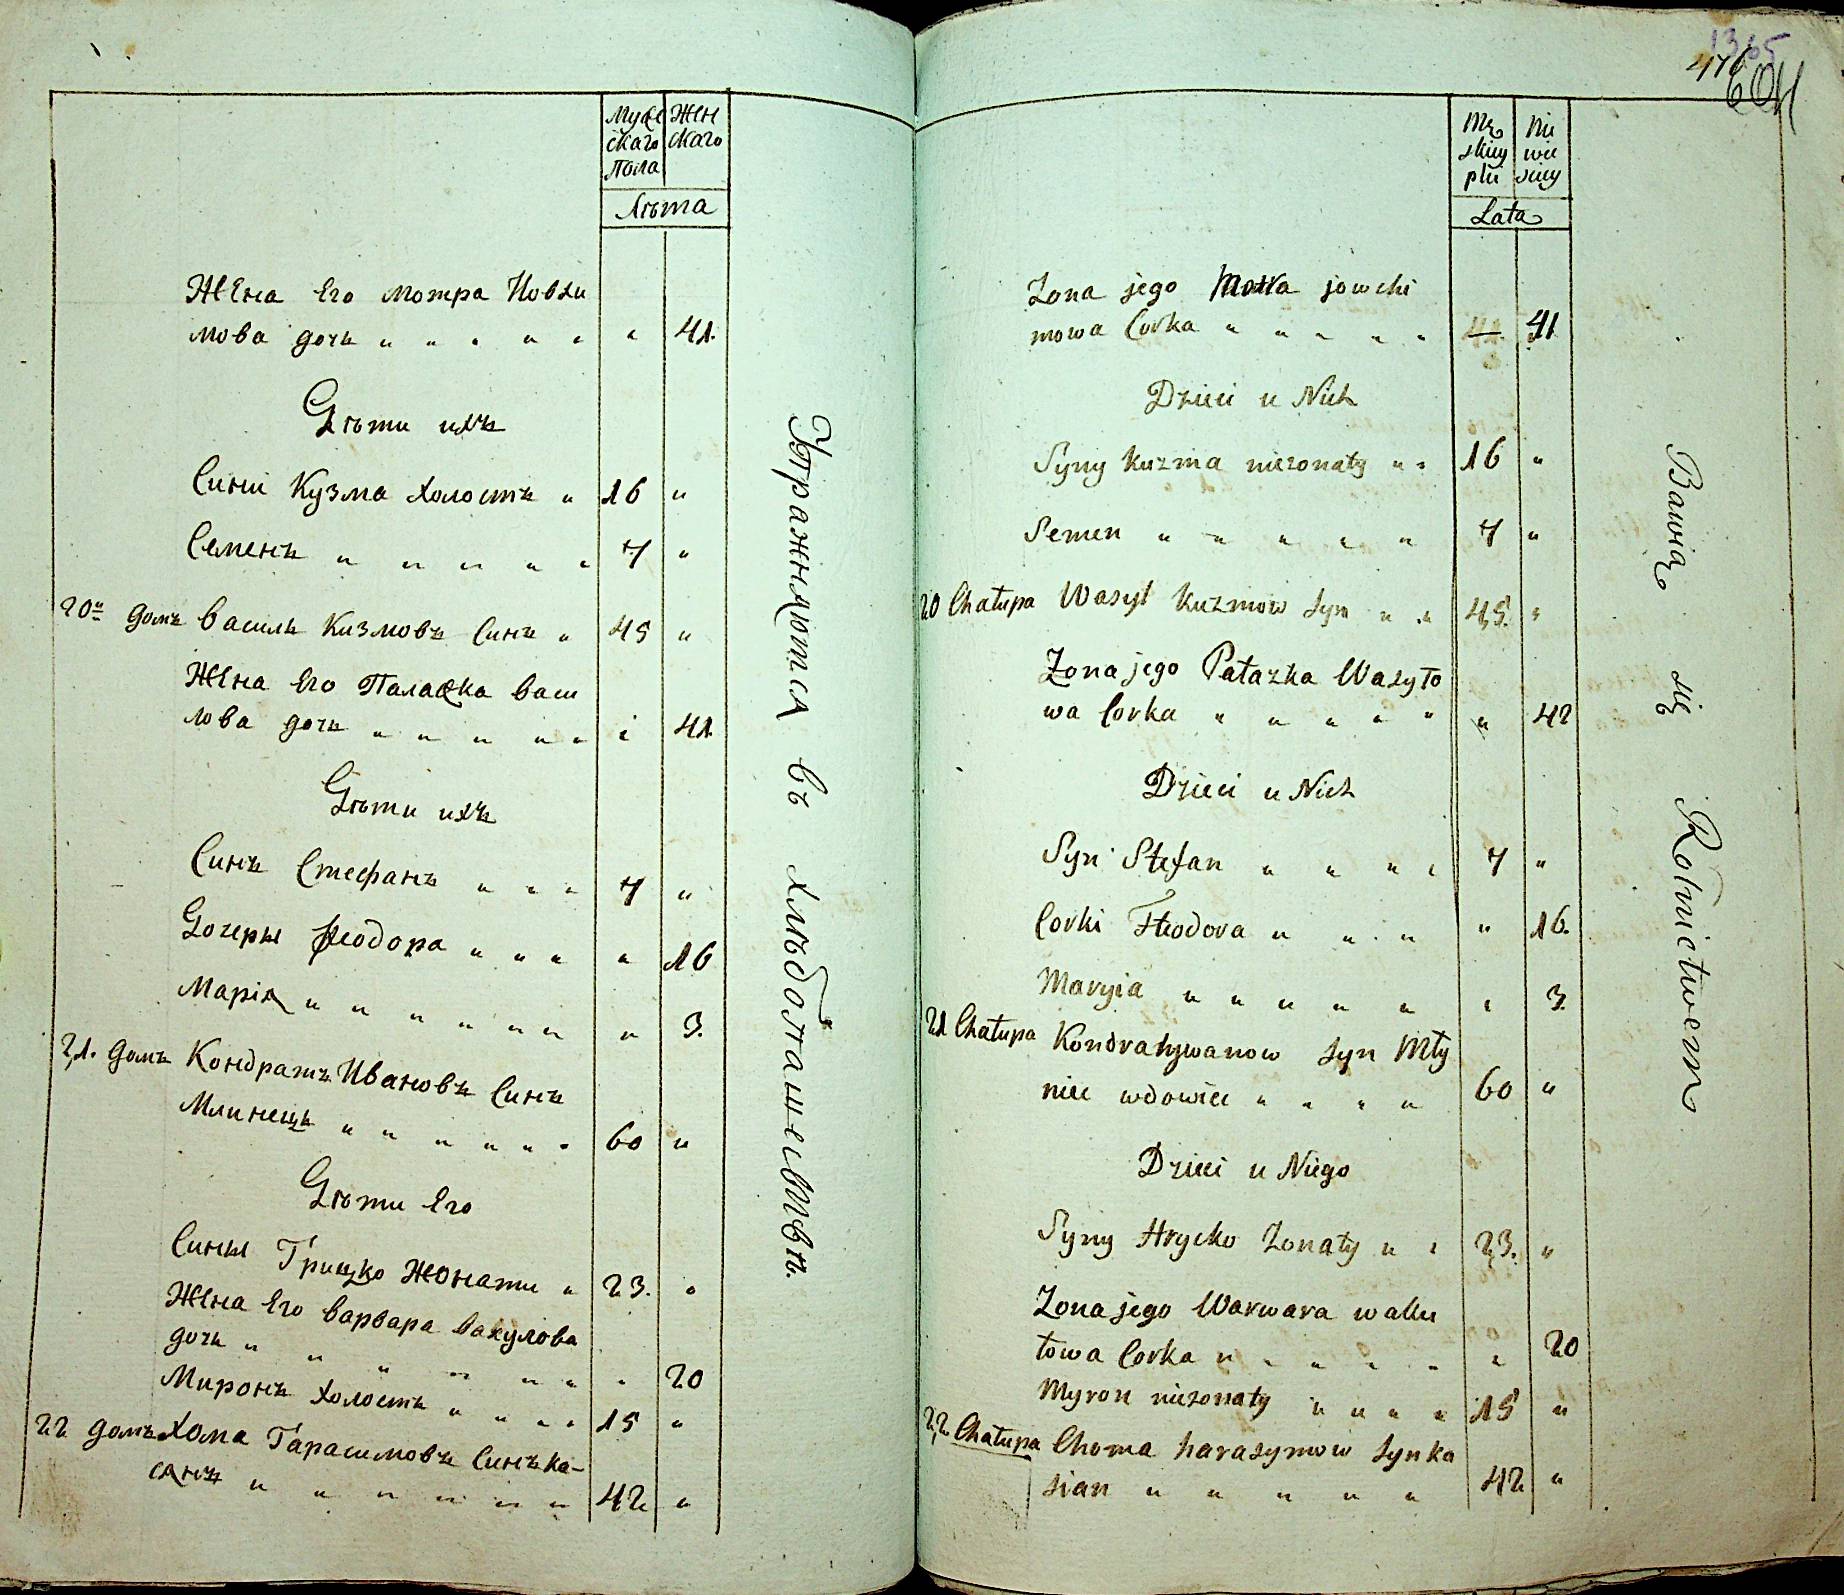 Мужескаго Пола
Женскаго
Лѣта
Жена Его Мотра Иовхи
мова дочь " " " " " " 41.
Дѣти ихъ
Сини Кузма Холостъ " 16 "
Семенъ " " " " " 7 "
20й домъ Василь Кизмовъ Синъ " 45 "
Жена Его Палажка Васи
лова дочь " " " " " " 41.
Дѣти ихъ
Синъ Стефанъ " " " 7 "
Дочеры Феодора " " " " 16
Марія " " " " " " " 3.
21. домъ Кондратъ Ивановъ Синъ
Млинецъ " " " " " " 60 "
Дѣти Его
Сины Грицко Жонати " 23. "
Жена Его Варвара Вакулова
дочь " " " " " " " 20
Миронъ Холостъ " " " " 15 "
22 домъ Хома Гарасимовъ Синъ Ка-
сянъ " " " " " " " 42 "
Упражняютса въ хлѣбопашествѣ.
476
Męskiey płci
Niewiesciey
Lata
Zona jego Motra jowchi
mowa Corka " " " " " 41
Dzieci u Nich
Syny Kuzma niezonaty " " 16 "
Semen " " " " " 7 "
20 Chałupa Wasyl Kuzmow Syn " " 45. "
Zona jego Pałazka Wasyło
wa Corka " " " " " " 42
Dzieci u Nich
Syn Stefan " " " " 7 "
Corki Fteodora " " " " 16.
Maryia " " " " " " 3.
21 Chałupa Kondratywanow Syn Mły
niec wdowiec " " " " 60 "
Dzieci u Niego
Syny Hrycko Zonaty " " 23. "
Zona jego Warwara waku
łowa Corka " " " " " " 20
Myron niezonaty " " " " 15 "
22. Chałupa Choma harasymow Syn ka
sian " " " " " 42 "
Bawią się Rolnictwem